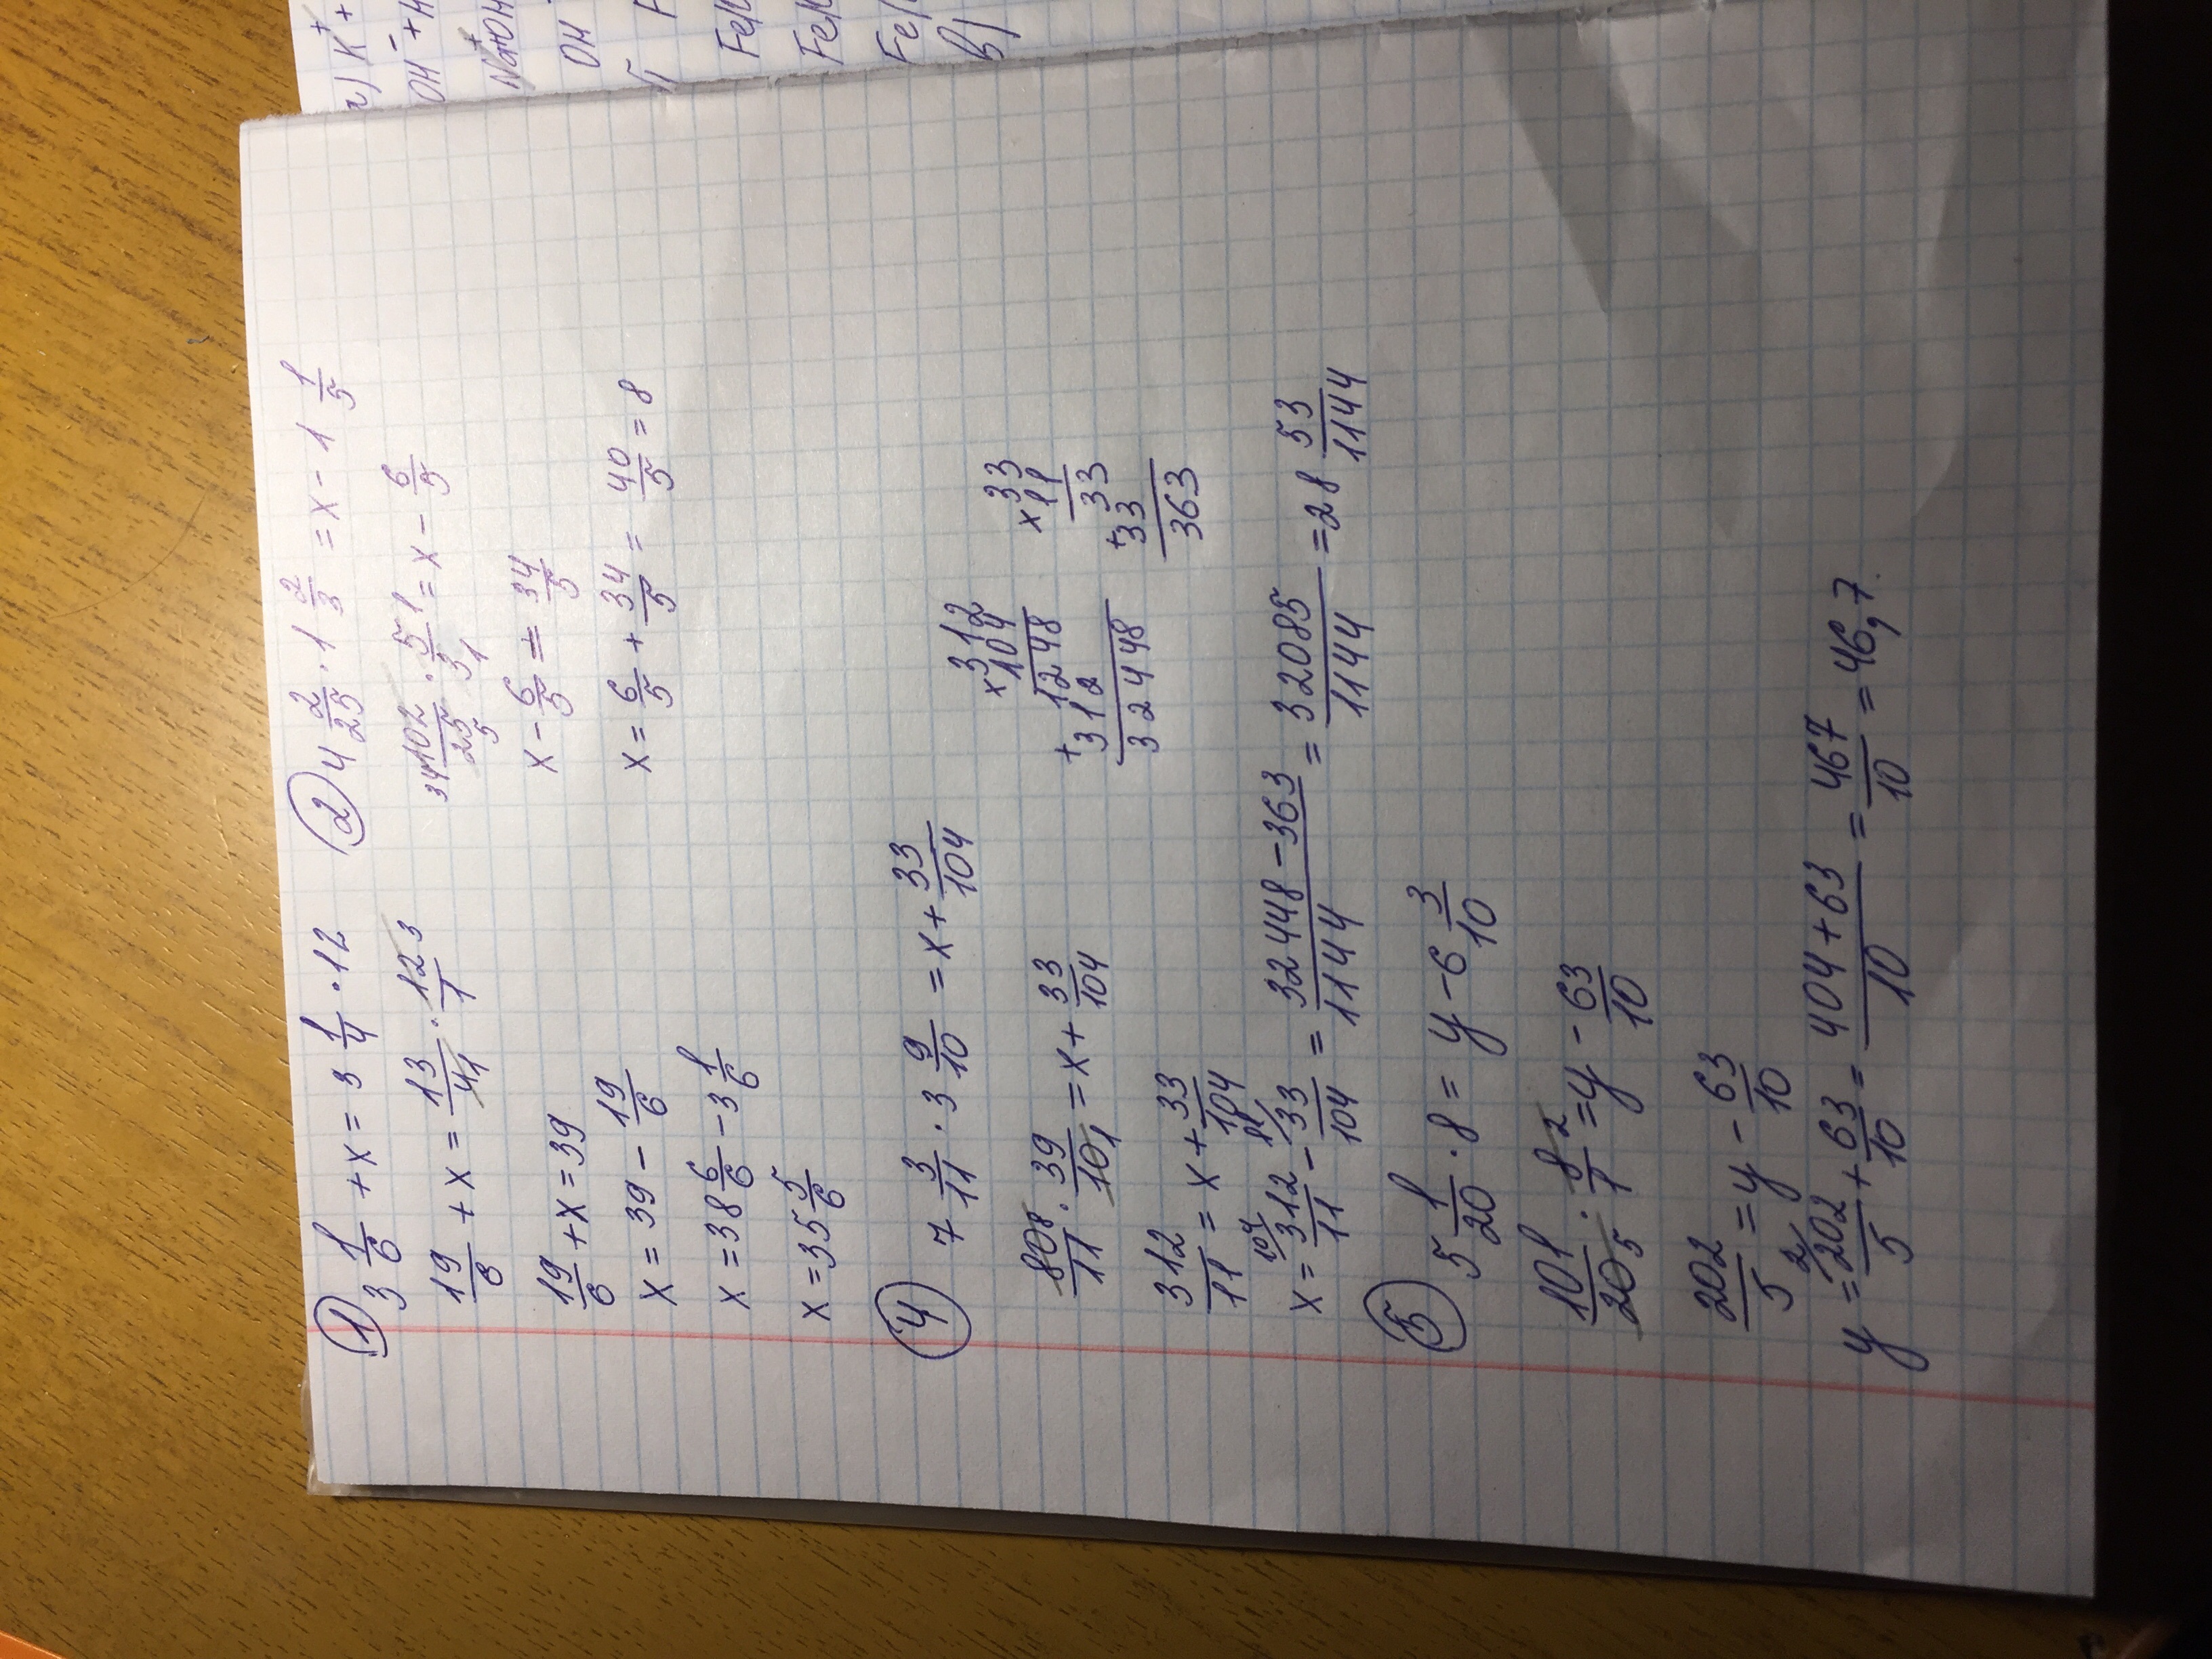 ① 3 1/6 + x = 3 1/4 · 12
19/6 + x = 13/4 1 · 12/1 3
19/6 + x = 39
x = 39 - 19/6
x = 38 6/6 - 3 1/6
x = 35 5/6
② 4 2/25 · 1 2/3 = x - 1 1/5
34 102/25 5 · 5/3 1 1 = x - 6/5
x - 6/5 = 34/5
x = 6/5 + 34/5 = 40/5 = 8
④ 7 3/11 · 3 9/10 = x + 33/104
80 8/11 · 39/10 1 = x + 33/104
312/11 = x + 33/104
x = 104/ 312/11 - 11/ 33/104 = 32448 - 363/1144 = 32085/1144 = 28 53/1144
x 312
104
1248
+ 312
32448
x 33
11
33
+ 33
363
⑤ 5 1/20 · 8 = y - 6 3/10
101/20 5 · 8/1 2 = y - 63/10
202/5 = y - 63/10
y = 2/ 202/5 + 63/10 = 404 + 63/10 = 467/10 = 46,7.
K⁺ +
OH⁻ + H
Na⁺OH
OH
Fe
Fe
Fe
в)